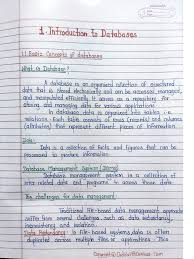 1. Introduction to Databases
1.1 Basic Concepts of databases
What is Database?
A database is an organized collection of structured
data that is stored electronically and can be accessed, managed,
and manipulated efficiently. It serves as a repository for
storing and managing data for various applications.
In a database, data is organized into tables i.e.
relations. Each table consists of rows (records) and columns
(attributes) that represent different pieces of information.
Data:
Data is a collection of facts and figures that can be
processed to produce information.
Database Management System (DBMS)
Database management system is a collection of
inter related data and programs to access those data.
The challenges for data management:
Traditional file-based data management approaches
suffer from several challenges, such as data redundancy,
inconsistency and isolation.
Data Redundancy: In file-based systems, data is often
duplicated across multiple files or applications. This